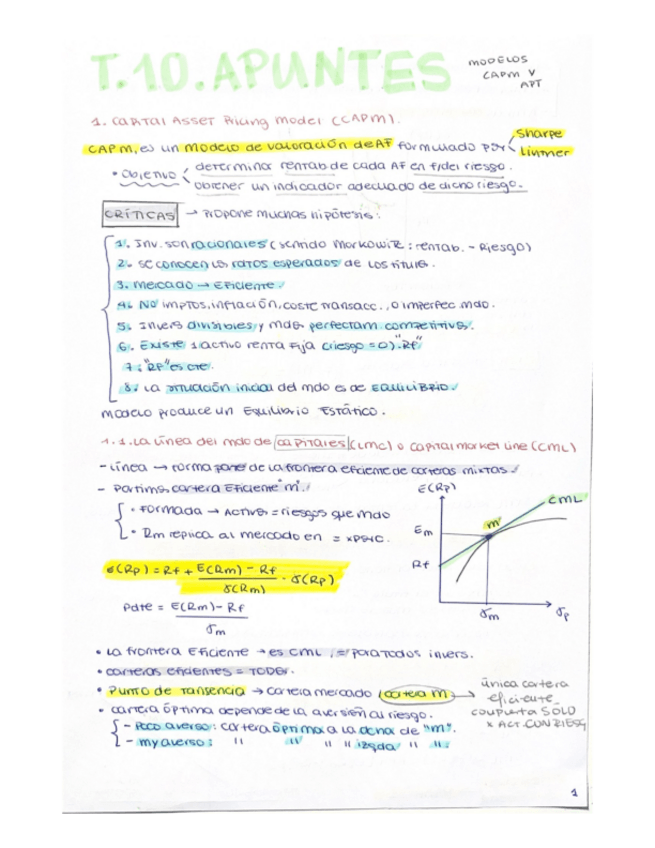 T.10. APUNTES
MODELOS
CAPM Y
APT
1. CAPITAL Asset Pricing Model (CAPM).
CAPM, es un modelo de valoración de AF formulado por
Sharpe
Lintner
• Objetivo
determinar rentab de cada AF en f(del riesgo).
obtener un indicador adecuado de dicho riesgo.
CRÍTICAS → Propone muchas hipótesis:
1. Inv. son racionales (según Markowitz: rentab. - Riesgo)
2. se conocen los ratos esperados de los títulos.
3. Mercado → Eficiente.
4. No imptos, inflación, coste transacc., o imperfec mdo.
5. Invers divisibles y mdos perfectam competitivos.
6. Existe 1 activo renta fija (riesgo = 0). "Rf"
7. "RF" es cte.
8. La situación inicial del mdo es de EQUILIBRIO.
Modelo produce un Equilibrio Estático.
1.1. La línea del mdo de capitales (LMC) o capital market line (CML)
- Línea → forma parte de la frontera eficiente de carteras mixtas.
- Partimos cartera Eficiente "m".
• Formada → Activos = riesgos que mdo
• Rm replica al mercado en = xpsic.
E(Rp)
CML
m
Em
Rf
σm
σp
E(Rp) = Rf + E(Rm) - Rf / σ(Rm) · σ(Rp)
Pdte = E(Rm) - Rf / σm
• La frontera Eficiente → es CML, = para todos invers.
• carteras eficientes = TODER.
• Punto de Tangencia → cartera mercado (cartera m) →
única cartera
eficiente
compuesta SOLO
x ACT. CON RIESG
• cartera óptima depende de la aversión al riesgo.
- Poco averso: cartera óptima a la dcha de "m".
- my averso: " " " " izqda " ".
1